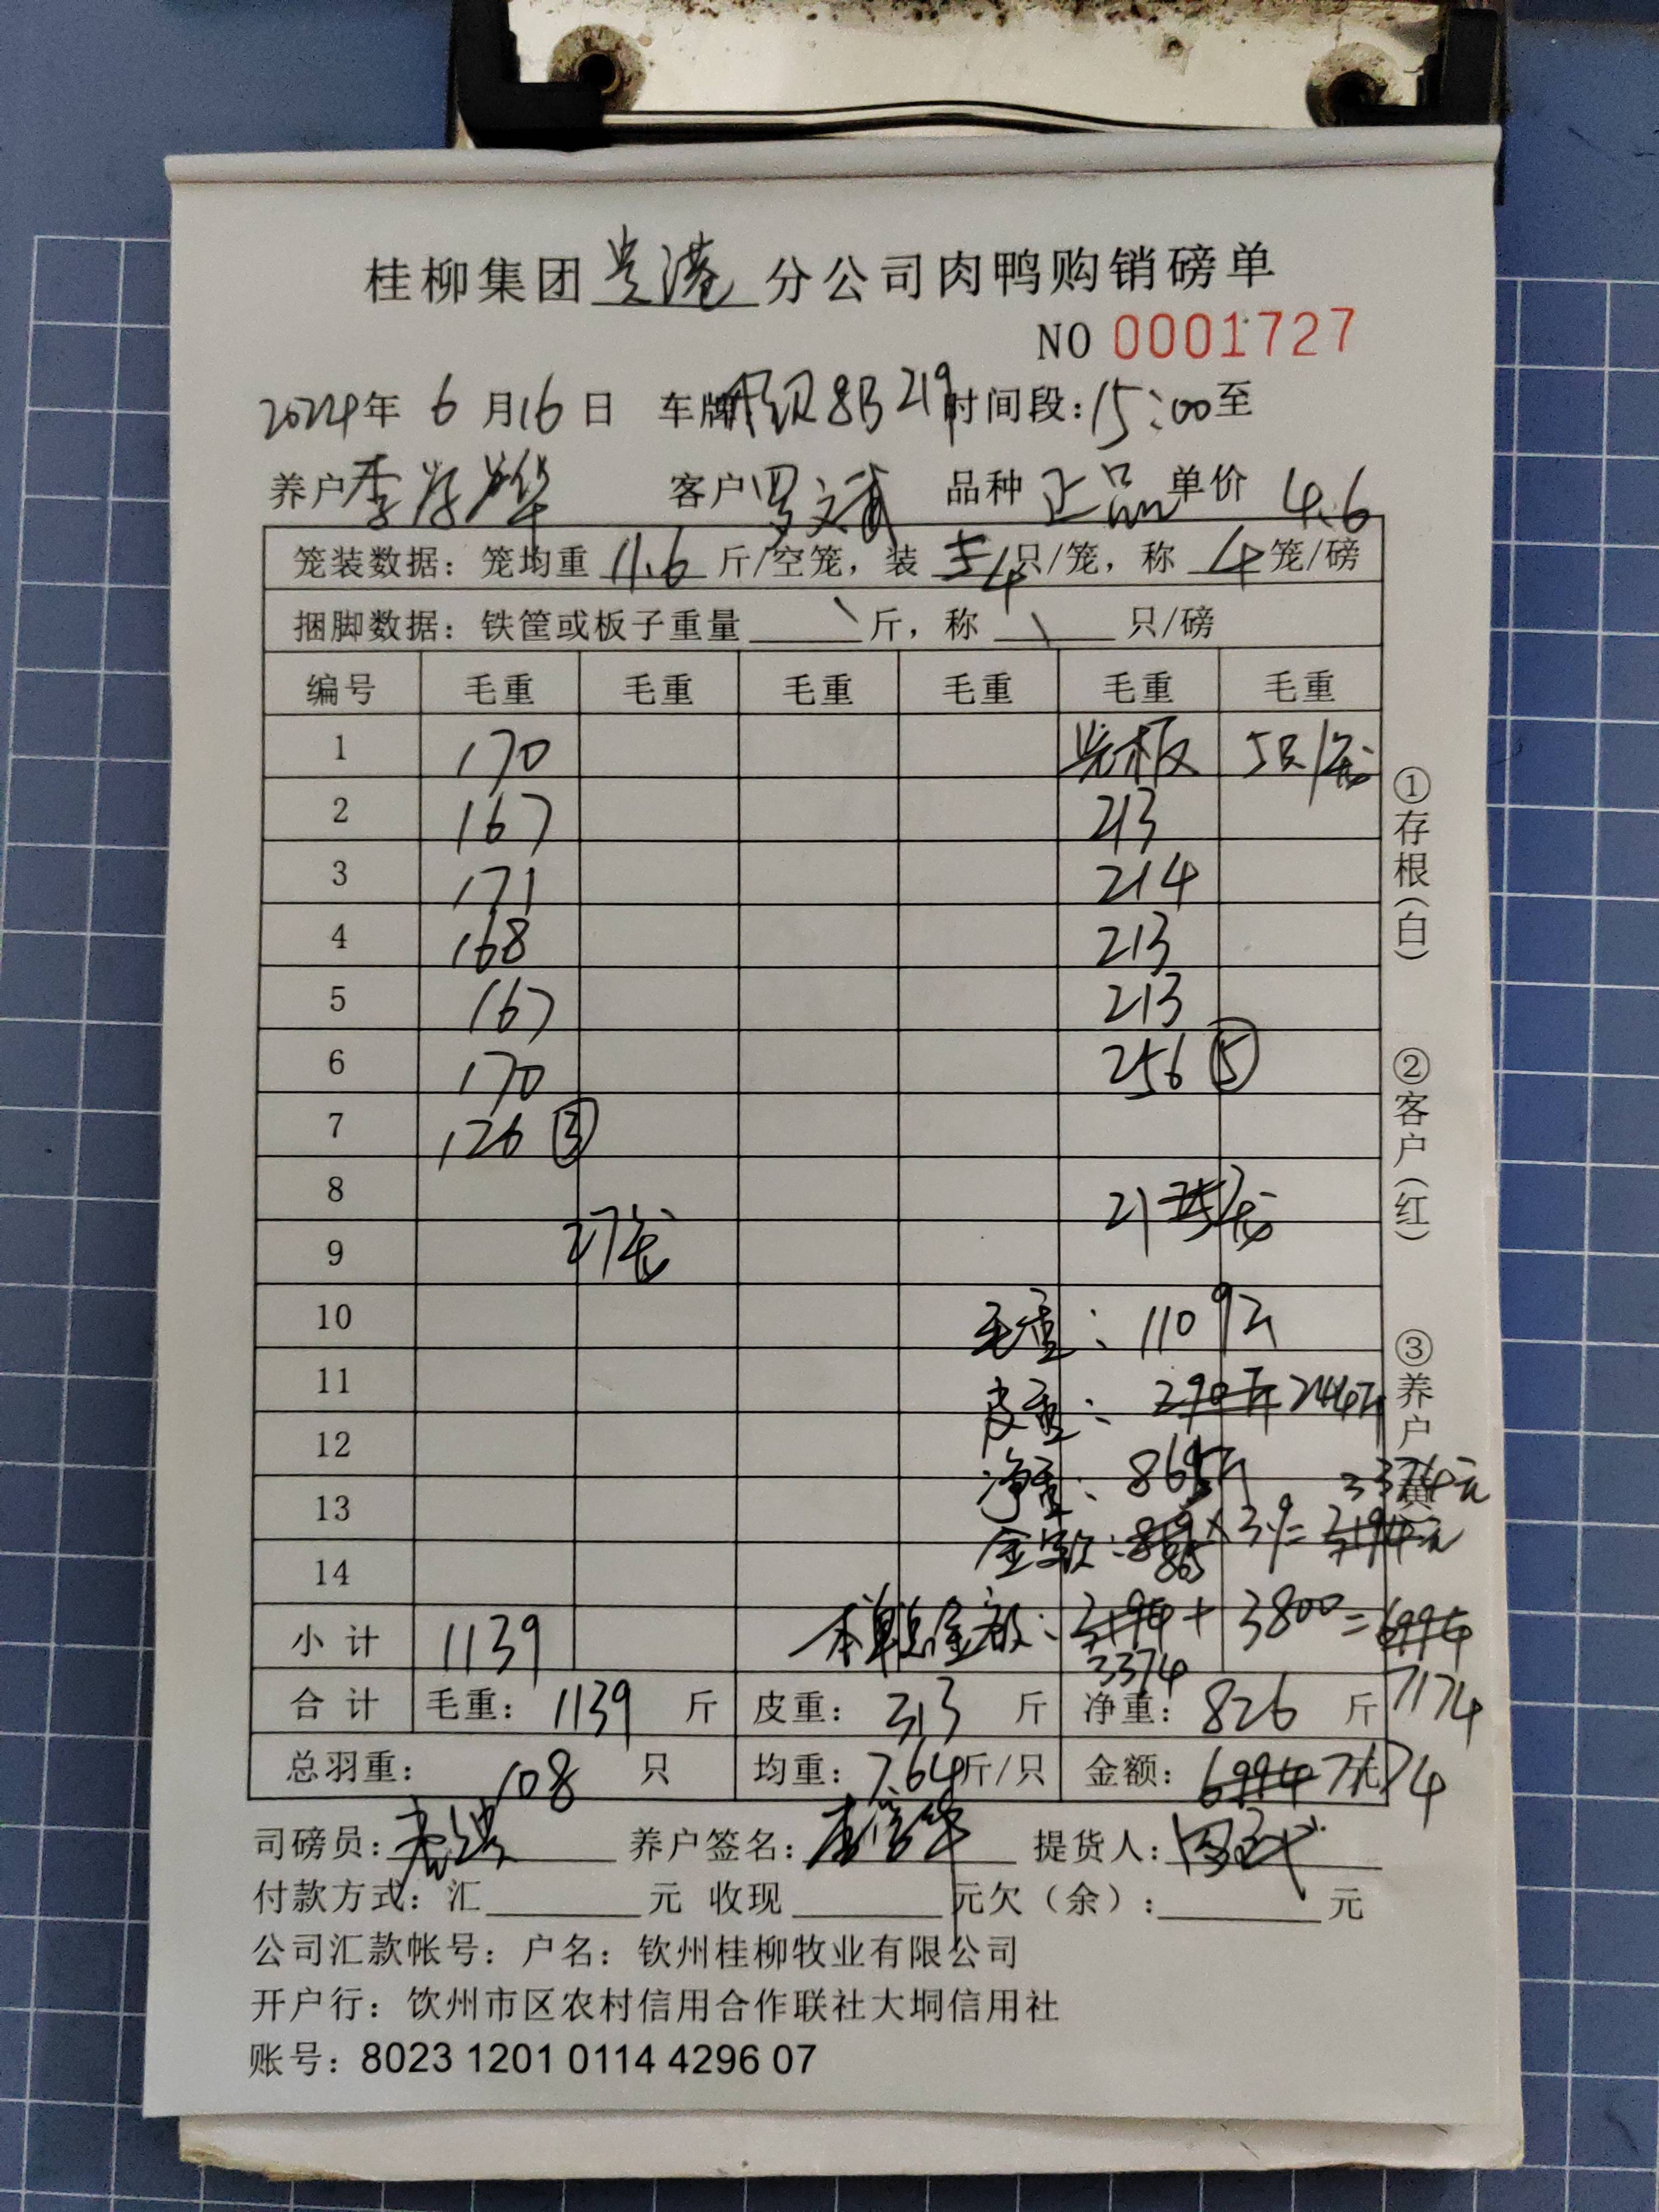 桂柳集团贵港分公司肉鸭购销磅单
NO 0001727
2024年 6 月16 日 车牌 8B219 时间段:15:00至
养户李 华 客户罗文武 品种 正品 单价 4.6
笼装数据: 笼均重 11.6 斤/空笼, 装 4 只/笼, 称 4 笼/磅
捆脚数据: 铁筐或板子重量 \ 斤, 称 \ 只/磅
编号 毛重 毛重 毛重 毛重 毛重 毛重
1 170 光板 5只/笼
2 167 213
3 171 214
4 168 213
5 167 213
6 170 256 ⑤
7 126 ③
8 21 笼
9 27笼
10 毛重: 1109斤
11 皮重: 290斤 244斤
12 净重: 865斤 3374元
13 金额: 819 865 ×3.9= 3194元
14
小计 1139 本单总金额: 3194 + 3800 = 6994
3374
合计 毛重: 1139 斤 皮重: 313 斤 净重: 826 斤 7174
总羽重: 108 只 均重: 7.64斤/只 金额: 6994 7174元
司磅员: 养户签名: 提货人:
付款方式: 汇 元 收现 元欠(余): 元
公司汇款帐号: 户名: 钦州桂柳牧业有限公司
开户行: 饮州市区农村信用合作联社大垌信用社
账号: 8023 1201 0114 4296 07
①存根(白) ②客户(红) ③养户(黄)